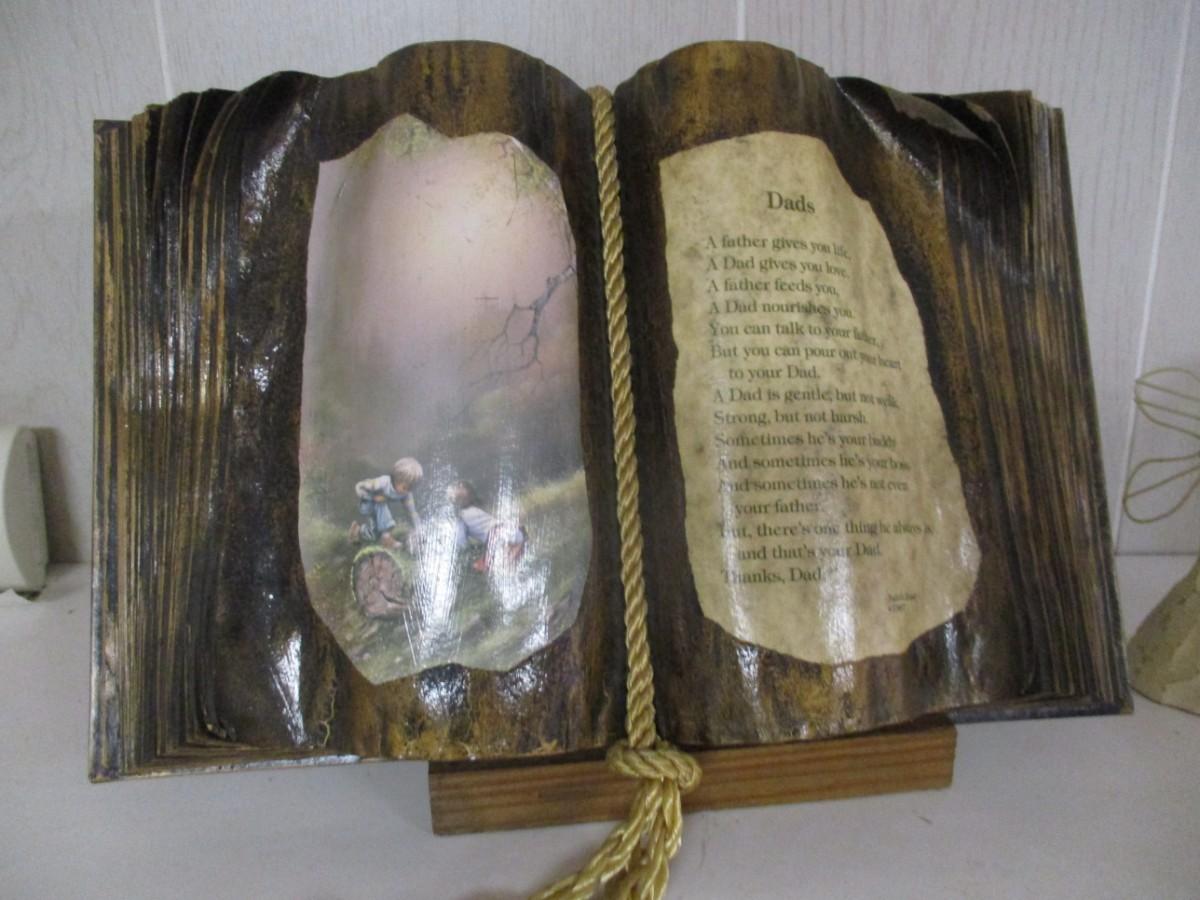 Dads
A father gives you life,
A Dad gives you love.
A father feeds you,
A Dad nourishes you.
You can talk to your father,
But you can pour out your heart
to your Dad.
A Dad is gentle, but not weak,
Strong, but not harsh.
Sometimes he's your buddy
And sometimes he's your boss
And sometimes he's not even
your father.
But, there's one thing he always is
and that's your Dad.
Thanks, Dad.